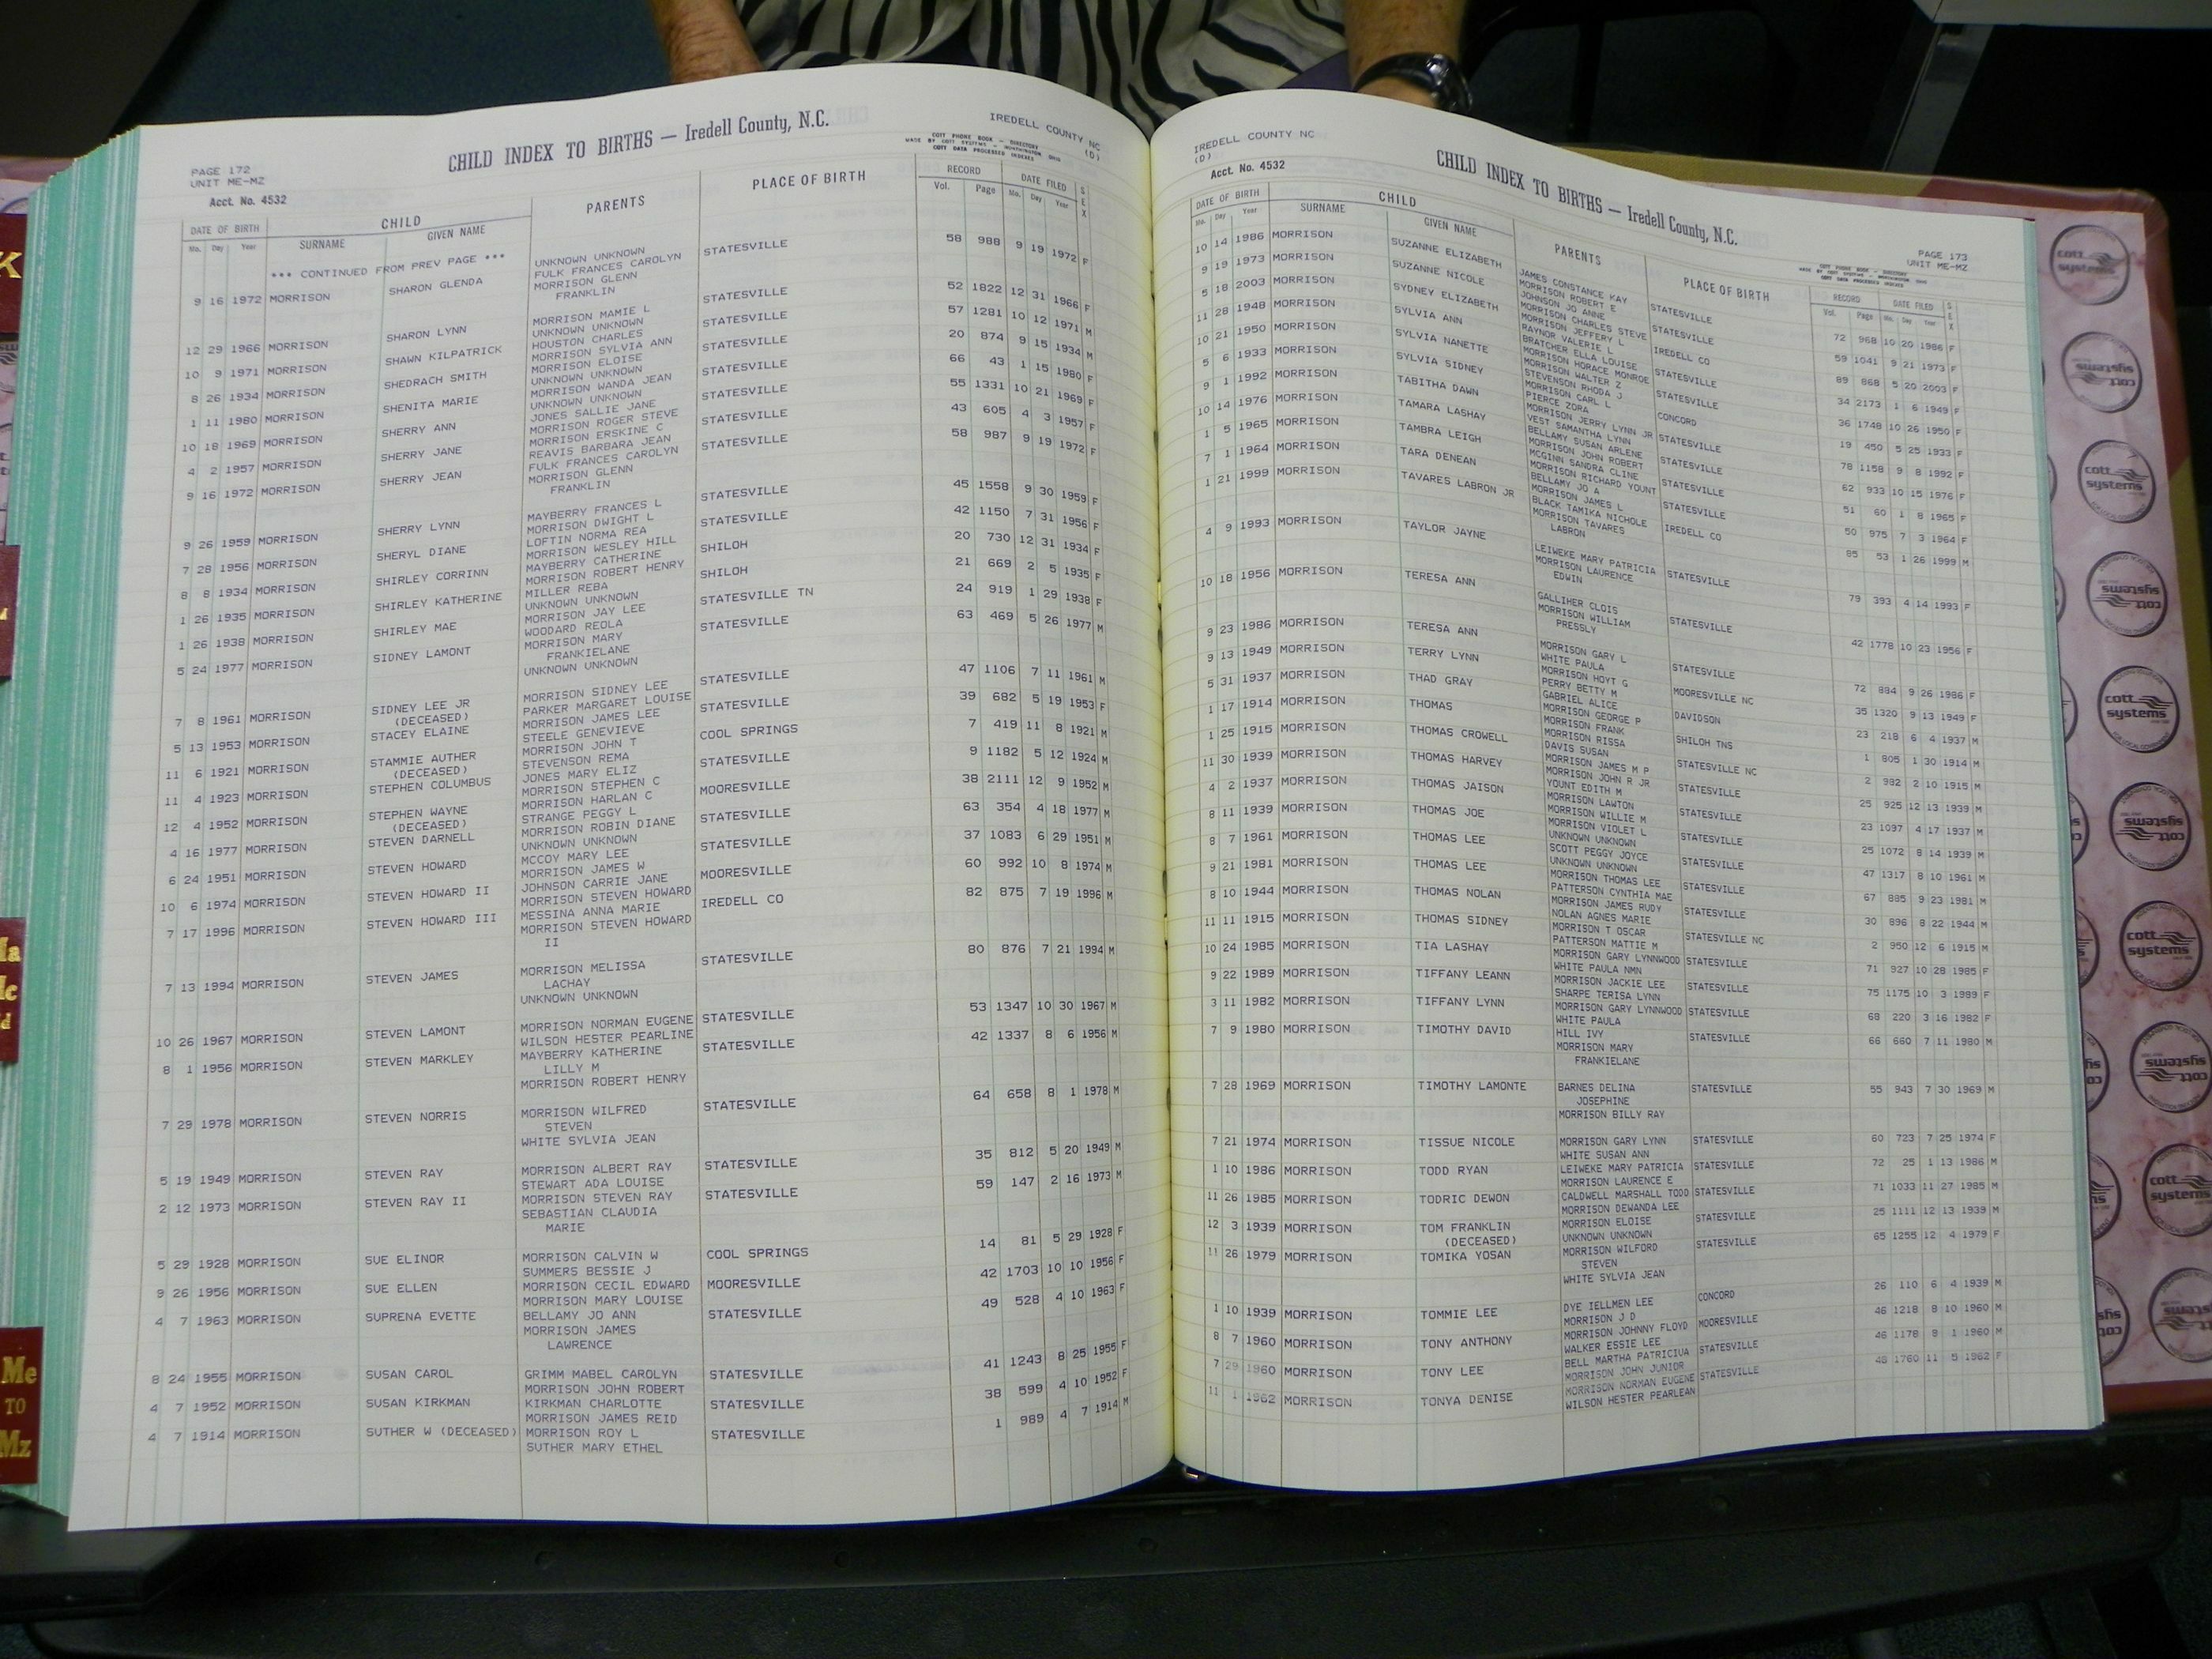 CHILD INDEX TO BIRTHS — Iredell County, N.C.
IREDELL COUNTY NC
(D)
COTT PHONE BOOK - DIRECTORY
MADE BY COTT SYSTEMS - WORTHINGTON OHIO
COTT DATA PROCESSED INDEXES
PAGE 172
UNIT ME-MZ
Acct. No. 4532
DATE OF BIRTH CHILD PARENTS PLACE OF BIRTH RECORD DATE FILED SEX
Mo. Day Year SURNAME GIVEN NAME Vol. Page Mo. Day Year
*** CONTINUED FROM PREV PAGE *** UNKNOWN UNKNOWN
9 16 1972 MORRISON SHARON GLENDA FULK FRANCES CAROLYN STATESVILLE 58 988 9 19 1972 F
MORRISON GLENN
FRANKLIN
12 29 1966 MORRISON SHARON LYNN MORRISON MAMIE L STATESVILLE 52 1822 12 31 1966 F
UNKNOWN UNKNOWN
10 9 1971 MORRISON SHAWN KILPATRICK HOUSTON CHARLES STATESVILLE 57 1281 10 12 1971 M
MORRISON SYLVIA ANN
8 26 1934 MORRISON SHEDRACH SMITH MORRISON ELOISE STATESVILLE 20 874 9 15 1934 M
UNKNOWN UNKNOWN
1 11 1980 MORRISON SHENITA MARIE MORRISON WANDA JEAN STATESVILLE 66 43 1 15 1980 F
UNKNOWN UNKNOWN
10 18 1969 MORRISON SHERRY ANN JONES SALLIE JANE STATESVILLE 55 1331 10 21 1969 F
MORRISON ROGER STEVE
4 2 1957 MORRISON SHERRY JANE MORRISON ERSKINE C STATESVILLE 43 605 4 3 1957 F
REAVIS BARBARA JEAN
9 16 1972 MORRISON SHERRY JEAN FULK FRANCES CAROLYN STATESVILLE 58 987 9 19 1972 F
MORRISON GLENN
FRANKLIN
9 26 1959 MORRISON SHERRY LYNN MAYBERRY FRANCES L STATESVILLE 45 1558 9 30 1959 F
MORRISON DWIGHT L
7 28 1956 MORRISON SHERYL DIANE LOFTIN NORMA REA STATESVILLE 42 1150 7 31 1956 F
MORRISON WESLEY HILL
8 8 1934 MORRISON SHIRLEY CORRINN MAYBERRY CATHERINE SHILOH 20 730 12 31 1934 F
MORRISON ROBERT HENRY
1 26 1935 MORRISON SHIRLEY KATHERINE MILLER REBA SHILOH 21 669 2 5 1935 F
UNKNOWN UNKNOWN
1 26 1938 MORRISON SHIRLEY MAE MORRISON JAY LEE STATESVILLE TN 24 919 1 29 1938 F
WOODARD REOLA
5 24 1977 MORRISON SIDNEY LAMONT MORRISON MARY STATESVILLE 63 469 5 26 1977 M
FRANKIELANE
UNKNOWN UNKNOWN
7 8 1961 MORRISON SIDNEY LEE JR MORRISON SIDNEY LEE STATESVILLE 47 1106 7 11 1961 M
(DECEASED) PARKER MARGARET LOUISE
5 13 1953 MORRISON STACEY ELAINE MORRISON JAMES LEE STATESVILLE 39 682 5 19 1953 F
STEELE GENEVIEVE
11 6 1921 MORRISON STAMMIE AUTHER MORRISON JOHN T COOL SPRINGS 7 419 11 8 1921 M
(DECEASED) STEVENSON REMA
11 4 1923 MORRISON STEPHEN COLUMBUS JONES MARY ELIZ STATESVILLE 9 1182 5 12 1924 M
MORRISON STEPHEN C
12 4 1952 MORRISON STEPHEN WAYNE MORRISON HARLAN C MOORESVILLE 38 2111 12 9 1952 M
(DECEASED) STRANGE PEGGY L
4 16 1977 MORRISON STEVEN DARNELL MORRISON ROBIN DIANE STATESVILLE 63 354 4 18 1977 M
UNKNOWN UNKNOWN
6 24 1951 MORRISON STEVEN HOWARD MCCOY MARY LEE STATESVILLE 37 1083 6 29 1951 M
MORRISON JAMES W
10 6 1974 MORRISON STEVEN HOWARD II JOHNSON CARRIE JANE MOORESVILLE 60 992 10 8 1974 M
MORRISON STEVEN HOWARD
7 17 1996 MORRISON STEVEN HOWARD III MESSINA ANNA MARIE IREDELL CO 82 875 7 19 1996 M
MORRISON STEVEN HOWARD
II
7 13 1994 MORRISON STEVEN JAMES MORRISON MELISSA STATESVILLE 80 876 7 21 1994 M
LACHAY
UNKNOWN UNKNOWN
10 26 1967 MORRISON STEVEN LAMONT MORRISON NORMAN EUGENE STATESVILLE 53 1347 10 30 1967 M
WILSON HESTER PEARLINE
8 1 1956 MORRISON STEVEN MARKLEY MAYBERRY KATHERINE STATESVILLE 42 1337 8 6 1956 M
LILLY M
MORRISON ROBERT HENRY
7 29 1978 MORRISON STEVEN NORRIS MORRISON WILFRED STATESVILLE 64 658 8 1 1978 M
STEVEN
WHITE SYLVIA JEAN
5 19 1949 MORRISON STEVEN RAY MORRISON ALBERT RAY STATESVILLE 35 812 5 20 1949 M
STEWART ADA LOUISE
2 12 1973 MORRISON STEVEN RAY II MORRISON STEVEN RAY STATESVILLE 59 147 2 16 1973 M
SEBASTIAN CLAUDIA
MARIE
5 29 1928 MORRISON SUE ELINOR MORRISON CALVIN W COOL SPRINGS 14 81 5 29 1928 F
SUMMERS BESSIE J
9 26 1956 MORRISON SUE ELLEN MORRISON CECIL EDWARD MOORESVILLE 42 1703 10 10 1956 F
MORRISON MARY LOUISE
4 7 1963 MORRISON SUPRENA EVETTE BELLAMY JO ANN STATESVILLE 49 528 4 10 1963 F
MORRISON JAMES
LAWRENCE
8 24 1955 MORRISON SUSAN CAROL GRIMM MABEL CAROLYN STATESVILLE 41 1243 8 25 1955 F
MORRISON JOHN ROBERT
4 7 1952 MORRISON SUSAN KIRKMAN KIRKMAN CHARLOTTE STATESVILLE 38 599 4 10 1952 F
MORRISON JAMES REID
4 7 1914 MORRISON SUTHER W (DECEASED) MORRISON ROY L STATESVILLE 1 989 4 7 1914 M
SUTHER MARY ETHEL
IREDELL COUNTY NC
(D)
Acct. No. 4532
CHILD INDEX TO BIRTHS — Iredell County, N.C.
PAGE 173
UNIT ME-MZ
COTT PHONE BOOK - DIRECTORY
MADE BY COTT SYSTEMS - WORTHINGTON OHIO
COTT DATA PROCESSED INDEXES
DATE OF BIRTH CHILD PARENTS PLACE OF BIRTH RECORD DATE FILED SEX
Mo. Day Year SURNAME GIVEN NAME Vol. Page Mo. Day Year
10 14 1986 MORRISON SUZANNE ELIZABETH JAMES CONSTANCE KAY STATESVILLE 72 968 10 20 1986 F
MORRISON ROBERT E
9 19 1973 MORRISON SUZANNE NICOLE JOHNSON JO ANNE STATESVILLE 59 1041 9 21 1973 F
MORRISON CHARLES STEVE
5 18 2003 MORRISON SYDNEY ELIZABETH MORRISON JEFFERY L IREDELL CO 89 868 5 20 2003 F
RAYNOR VALERIE L
11 28 1948 MORRISON SYLVIA ANN BRATCHER ELLA LOUISE STATESVILLE 34 2173 1 6 1949 F
MORRISON HORACE MONROE
10 21 1950 MORRISON SYLVIA NANETTE MORRISON WALTER Z STATESVILLE 36 1748 10 26 1950 F
STEVENSON RHODA J
5 6 1933 MORRISON SYLVIA SIDNEY MORRISON CARL L CONCORD 19 450 5 25 1933 F
PIERCE ZORA
9 1 1992 MORRISON TABITHA DAWN MORRISON JERRY LYNN JR STATESVILLE 78 1158 9 8 1992 F
VEST SAMANTHA LYNN
10 14 1976 MORRISON TAMARA LASHAY BELLAMY SUSAN ARLENE STATESVILLE 62 933 10 15 1976 F
MORRISON JOHN ROBERT
1 5 1965 MORRISON TAMBRA LEIGH MCGINN SANDRA CLINE STATESVILLE 51 60 1 8 1965 F
MORRISON RICHARD YOUNT
7 1 1964 MORRISON TARA DENEAN BELLAMY JO A STATESVILLE 50 975 7 3 1964 F
MORRISON JAMES L
1 21 1999 MORRISON TAVARES LABRON JR BLACK TAMIKA NICHOLE IREDELL CO 85 53 1 26 1999 M
MORRISON TAVARES
LABRON
4 9 1993 MORRISON TAYLOR JAYNE LEIWEKE MARY PATRICIA STATESVILLE 79 393 4 14 1993 F
MORRISON LAURENCE
EDWIN
10 18 1956 MORRISON TERESA ANN GALLIHER CLOIS STATESVILLE 42 1778 10 23 1956 F
MORRISON WILLIAM
PRESSLY
9 23 1986 MORRISON TERESA ANN MORRISON GARY L STATESVILLE 72 884 9 26 1986 F
WHITE PAULA
9 13 1949 MORRISON TERRY LYNN MORRISON HOYT G MOORESVILLE NC 35 1320 9 13 1949 F
PERRY BETTY M
5 31 1937 MORRISON THAD GRAY GABRIEL ALICE DAVIDSON 23 218 6 4 1937 M
MORRISON GEORGE P
1 17 1914 MORRISON THOMAS MORRISON FRANK SHILOH TNS 1 805 1 30 1914 M
MORRISON RISSA
1 25 1915 MORRISON THOMAS CROWELL DAVIS SUSAN STATESVILLE NC 2 982 2 10 1915 M
MORRISON JAMES M P
11 30 1939 MORRISON THOMAS HARVEY MORRISON JOHN R JR STATESVILLE 25 925 12 13 1939 M
YOUNT EDITH M
4 2 1937 MORRISON THOMAS JAISON MORRISON LAWTON STATESVILLE 23 1097 4 17 1937 M
MORRISON WILLIE M
8 11 1939 MORRISON THOMAS JOE MORRISON VIOLET L STATESVILLE 25 1072 8 14 1939 M
UNKNOWN UNKNOWN
8 7 1961 MORRISON THOMAS LEE SCOTT PEGGY JOYCE STATESVILLE 47 1317 8 10 1961 M
UNKNOWN UNKNOWN
9 21 1981 MORRISON THOMAS LEE MORRISON THOMAS LEE STATESVILLE 67 885 9 23 1981 M
PATTERSON CYNTHIA MAE
8 10 1944 MORRISON THOMAS NOLAN MORRISON JAMES RUDY STATESVILLE 30 896 8 22 1944 M
NOLAN AGNES MARIE
11 11 1915 MORRISON THOMAS SIDNEY MORRISON T OSCAR STATESVILLE NC 2 950 12 6 1915 M
PATTERSON MATTIE M
10 24 1985 MORRISON TIA LASHAY MORRISON GARY LYNNWOOD STATESVILLE 71 927 10 28 1985 F
WHITE PAULA NMN
9 22 1989 MORRISON TIFFANY LEANN MORRISON JACKIE LEE STATESVILLE 75 1175 10 3 1989 F
SHARPE TERISA LYNN
3 11 1982 MORRISON TIFFANY LYNN MORRISON GARY LYNNWOOD STATESVILLE 68 220 3 16 1982 F
WHITE PAULA
7 9 1980 MORRISON TIMOTHY DAVID HILL IVY STATESVILLE 66 660 7 11 1980 M
MORRISON MARY
FRANKIELANE
7 28 1969 MORRISON TIMOTHY LAMONTE BARNES DELINA STATESVILLE 55 943 7 30 1969 M
JOSEPHINE
MORRISON BILLY RAY
7 21 1974 MORRISON TISSUE NICOLE MORRISON GARY LYNN STATESVILLE 60 723 7 25 1974 F
WHITE SUSAN ANN
1 10 1986 MORRISON TODD RYAN LEIWEKE MARY PATRICIA STATESVILLE 72 25 1 13 1986 M
MORRISON LAURENCE E
11 26 1985 MORRISON TODRIC DEWON CALDWELL MARSHALL TODD STATESVILLE 71 1033 11 27 1985 M
MORRISON DEWANDA LEE
12 3 1939 MORRISON TOM FRANKLIN MORRISON ELOISE STATESVILLE 25 1111 12 13 1939 M
(DECEASED) UNKNOWN UNKNOWN
11 26 1979 MORRISON TOMIKA YOSAN MORRISON WILFORD STATESVILLE 65 1255 12 4 1979 F
STEVEN
WHITE SYLVIA JEAN
1 10 1939 MORRISON TOMMIE LEE DYE IELLMEN LEE CONCORD 26 110 6 4 1939 M
MORRISON J D
8 7 1960 MORRISON TONY ANTHONY MORRISON JOHNNY FLOYD MOORESVILLE 46 1218 8 10 1960 M
WALKER ESSIE LEE
7 29 1960 MORRISON TONY LEE BELL MARTHA PATRICIUA STATESVILLE 46 1178 8 1 1960 M
MORRISON JOHN JUNIOR
11 1 1962 MORRISON TONYA DENISE MORRISON NORMAN EUGENE STATESVILLE 48 1760 11 5 1962 F
WILSON HESTER PEARLEAN
Me
TO
Mz
cott
systems